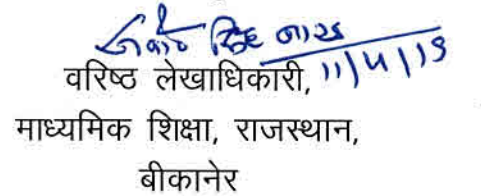 11/4/19
वरिष्ठ लेखाधिकारी,
माध्यमिक शिक्षा, राजस्थान,
बीकानेर